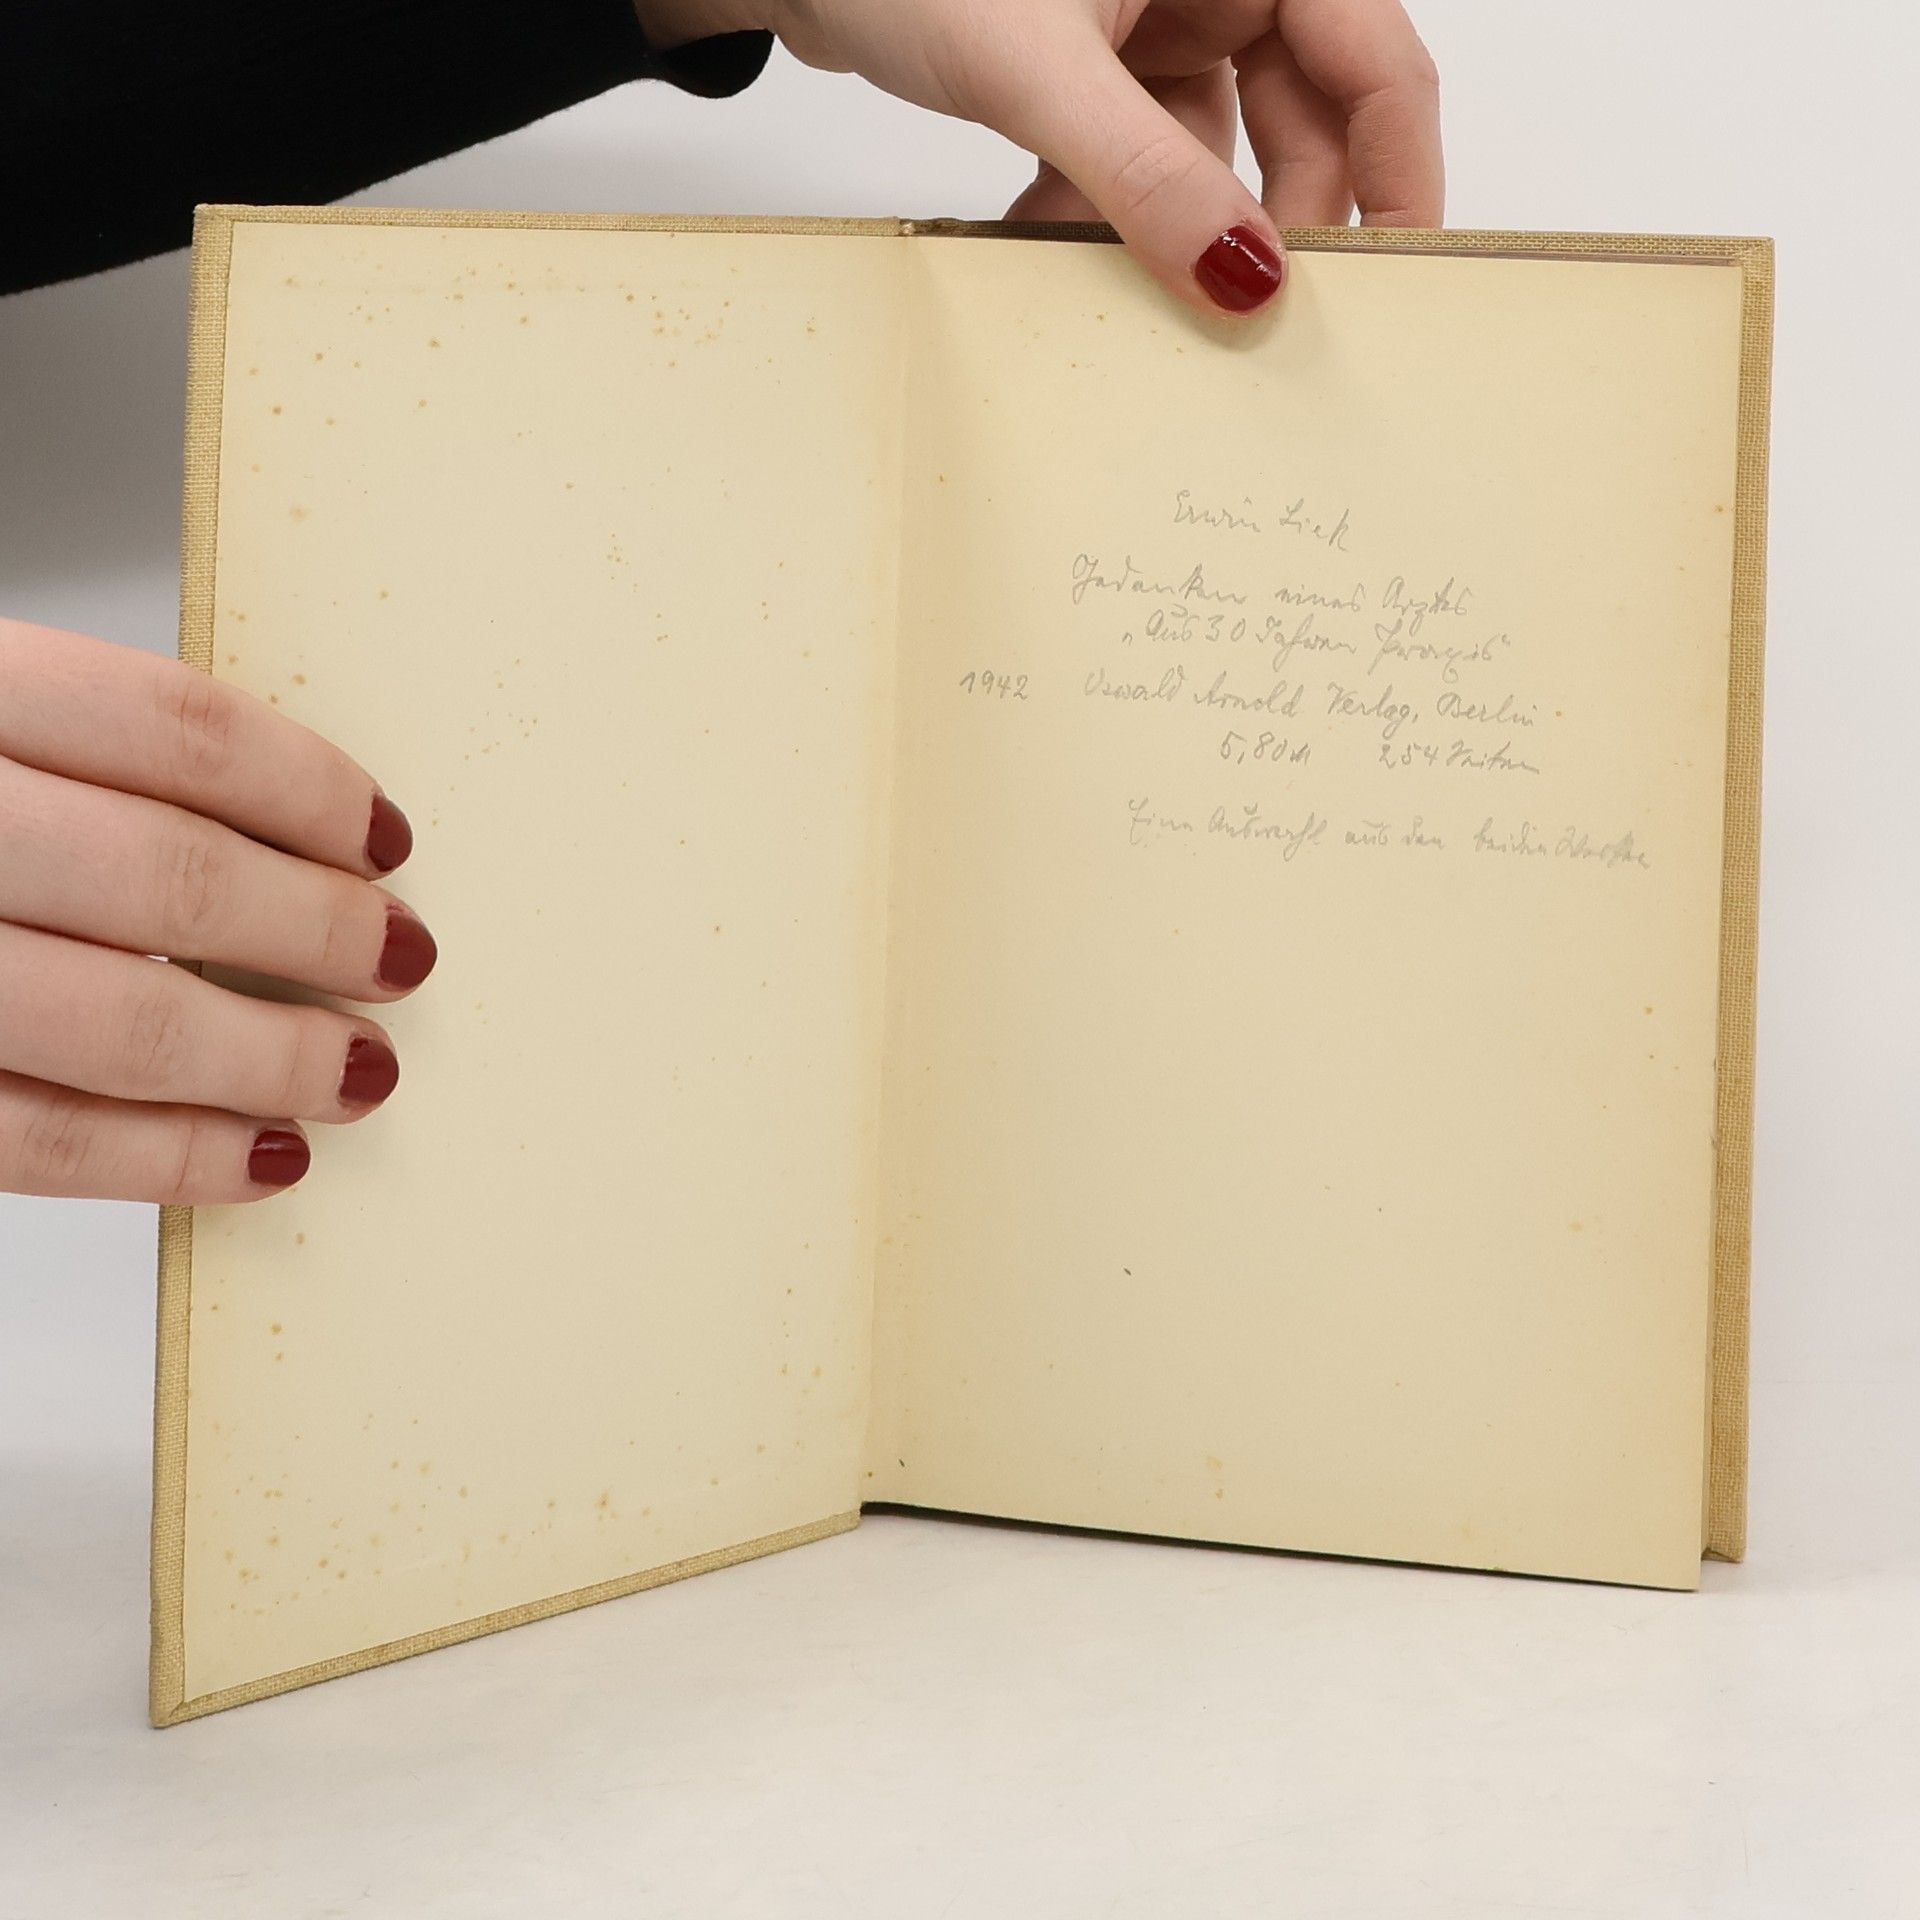 Erwin Liek
Gedanken eines Arztes
„Aus 30 Jahren Praxis“
1942 Oswald Arnold Verlag, Berlin
5,80 M 254 Seiten
Eine Auswahl aus den beiden Werken